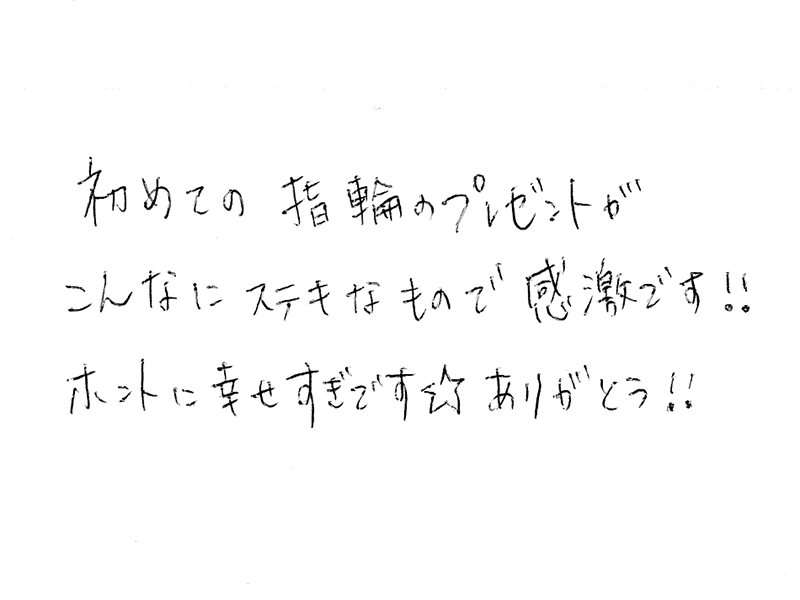 初めての指輪のプレゼントが
こんなにステキなもので感激です!!
ホントに幸せすぎです☆ありがとう!!